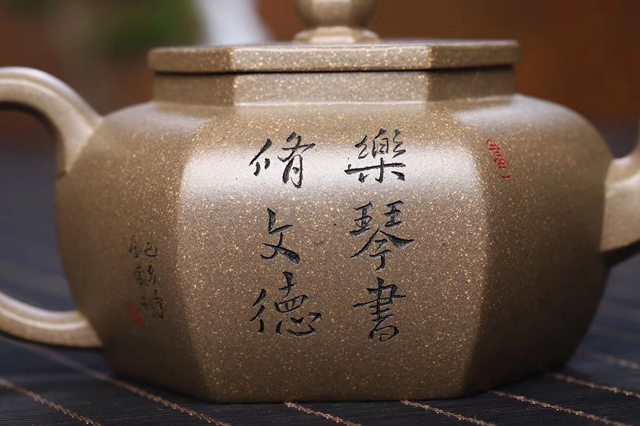 樂琴書
脩文德